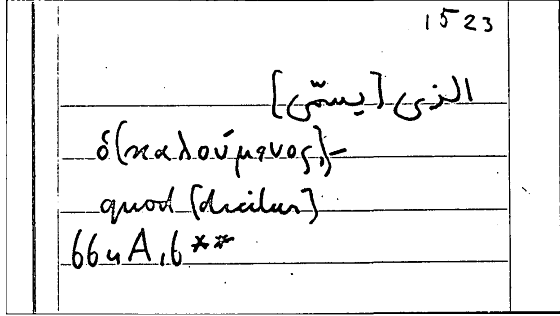 1523
الذى [يسمّى]
ὁ (καλούμενος,)-
quod [dicitur]
66u A,6**